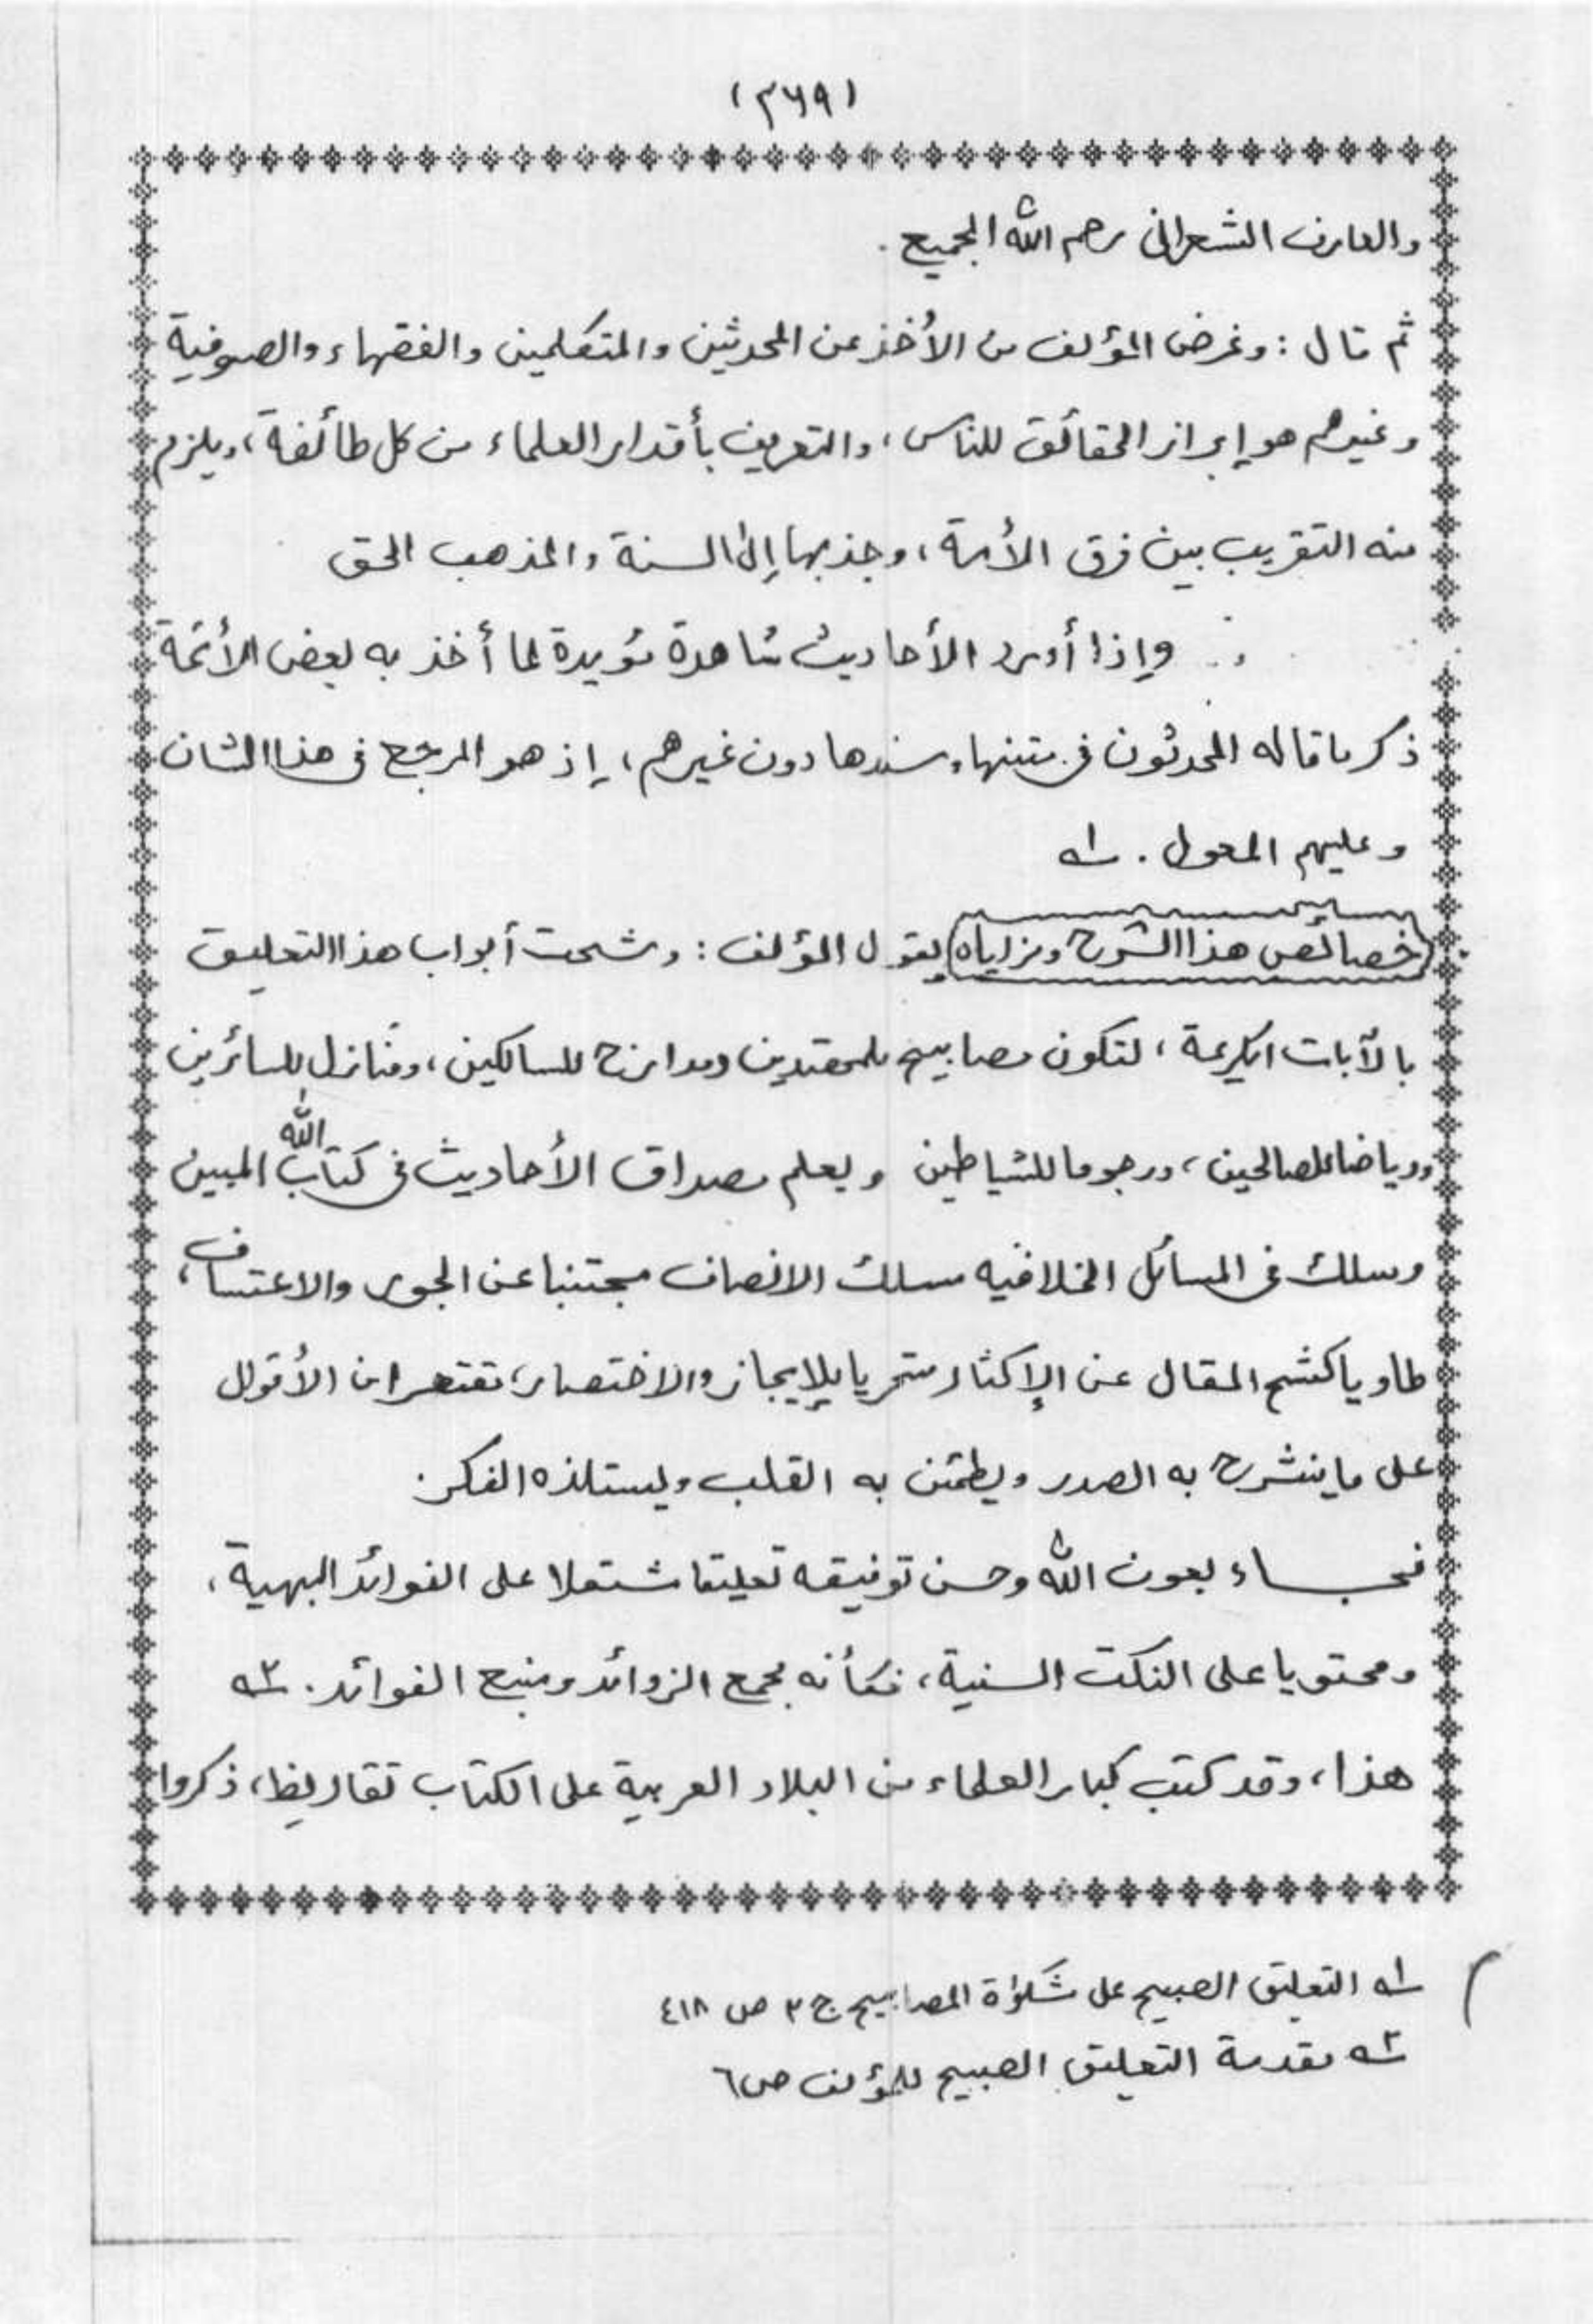 (٣٦٩)
والعارف الشعرانى رحم الله الجميع .
ثم قال : وغرض المؤلف من الأخذ عن المحدثين والمتكلمين والفقهاء والصوفية
وغيرهم هو إبراز الحقائق للناس ، والتعريف بأقدار العلماء من كل طائفة ، ويلزم
منه التقريب بين فرق الأمة ، وجذبها إلى السنة والمذهب الحق
وإذا أورد الأحاديث شاهدة مؤيدة لما أخذ به بعض الأئمة
ذكر ما قاله المحدثون فى متنها وسندها دون غيرهم ، إذ هو المرجع فى هذا الشان
وعليهم المعول . ١ــه
خصائص هذا الشرح ومزاياه يقول المؤلف : وشحت أبواب هذا التعليق
بالآيات الكريمة ، لتكون مصابيح للمهتدين ومدارج للسالكين ، ومنازل للسائرين
ورياضا للصالحين ، ورجوما للشياطين ويعلم مصداق الأحاديث فى كتاب الله المبين
وسلك فى المسائل الخلافيه مسلك الانصاف مجتنبا عن الجور والاعتساف ،
طاويا كشح المقال عن الإكثار متحريا بالإيجاز والاختصار ، تقتصر من الأقوال
على ما ينشرح به الصدر ويطمئن به القلب ويستلذه الفكر .
فجــاء بعون الله وحسن توفيقه تعليقا مشتملا على الفوائد البهية ،
ومحتويا على النكت السنية ، فكأنه مجمع الزوائد ومنبع الفوائد . ٢ــه
هذا ، وقد كتب كبار العلماء من البلاد العربية على الكتاب تقاريظ ، ذكروا
١ــه التعليق الصبيح على مشكوٰة المصابيح ج ٣ ص ٤١٨
٢ــه مقدمة التعليق الصبيح للمؤلف ص ٦